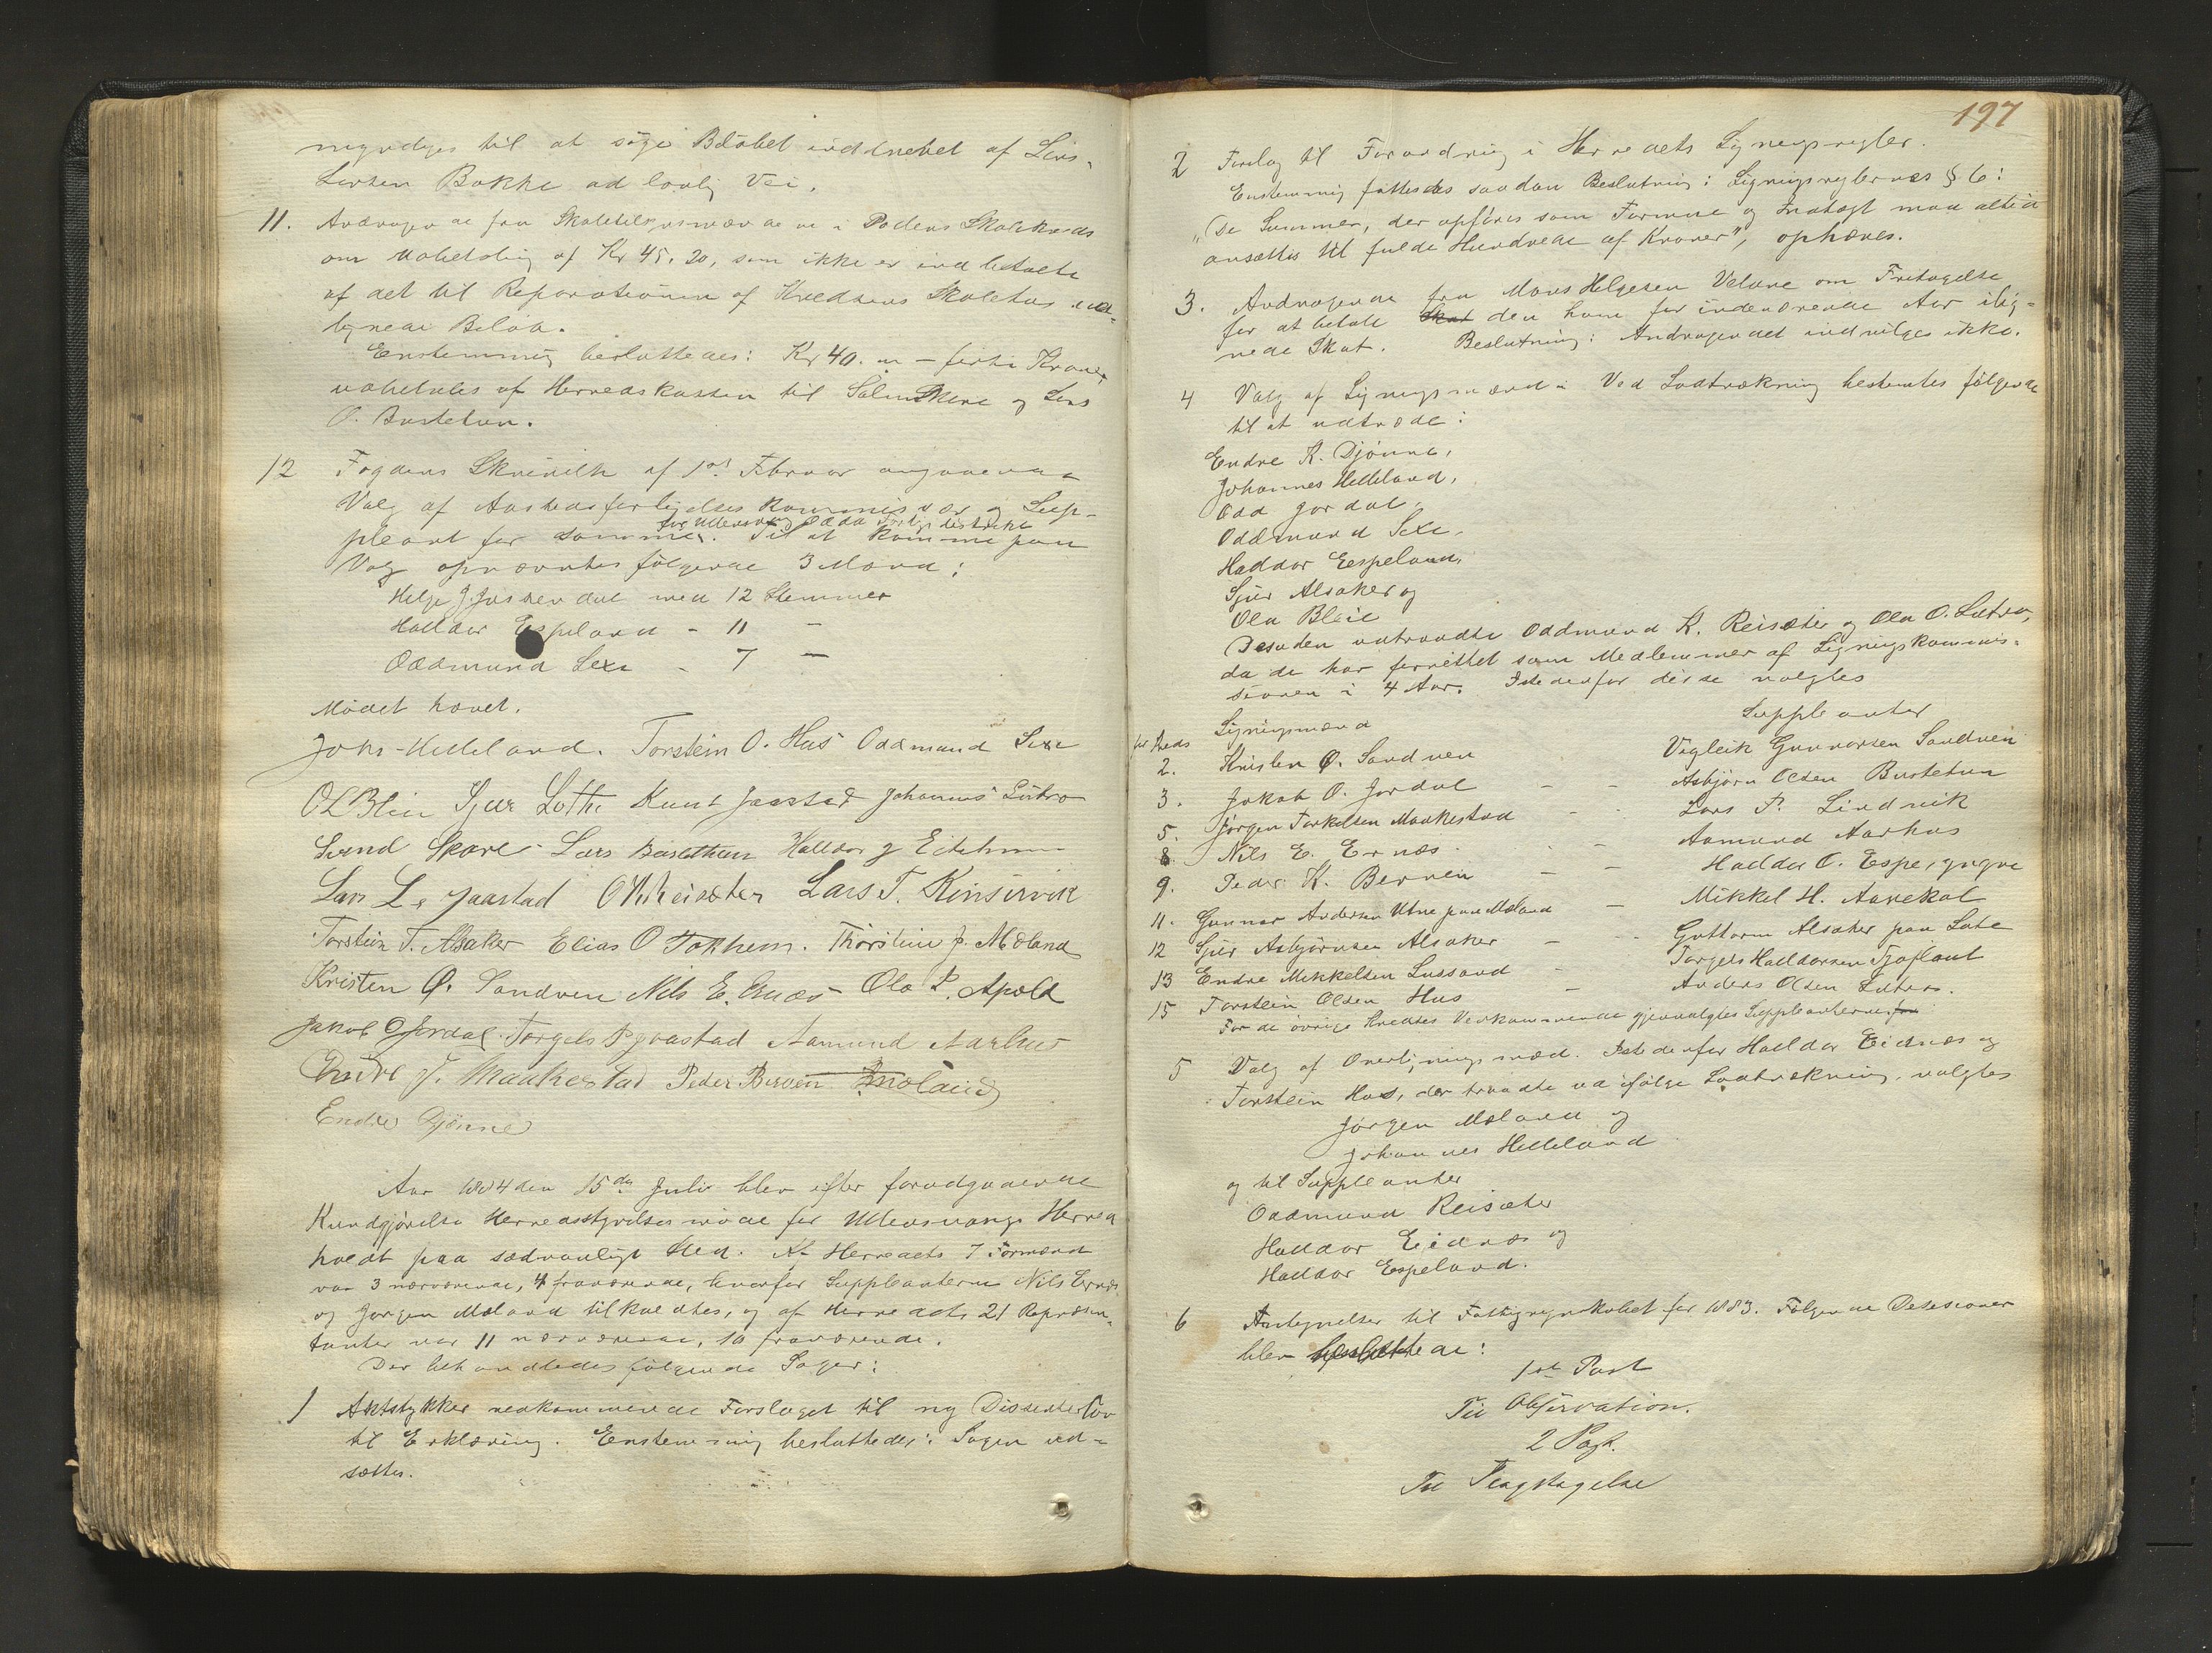 myndiges til at söge Belöbet inddrevet af Lars
Larsen Bakke ad lovlig Vei.
11. Andragende fra Skoletilsynsmændene i Skolekreds
om Udbetaling af Kr 45,20, som ikke er indbetalte
af det til Reparationen af Kredsens Skolehus ud-
lignede Belöb.
Enstemmig besluttedes: Kr 40.00 – førti Kroner
udbetales af Herredskassen til Skare og Lars
O. Bustetun.
12 Fogdens Skrivelse af 1ste Februar angaaende
Valg af Kommissær og Sup-
pleant for samme for Ullensvang Odda. Til at komme paa
Valg opnævntes følgende 3 Mænd:
Helge J. Jaastad med 12 Stemmer
Halldor Espeland – 11 –
Oddmund Sexe – 7 –
Mödet hævet.
Johs. Helleland. Torstein O. Hus Oddmund Sexe
O L Bleie Sjur Lothe Knut Jaastad Johannes Lutro
Svend Skare Lars Busethun Halldor J Eitnes
Lars L. Jaastad O K Reisæter Lars T. Kinservik
Torstein T. Alsaker Elias O Tokheim. Thorstein J. Mæland
Kristen Ø. Sandven Nils E. Ernæs Ola P. Apold
Jakob O Jordal. Torgels Pyrastad Aamund Aarhus
Endre J. Maakestad Peder Berven J. Mæland
Endre Djönne
Aar 1884 den 15de Juli blev efter forudgaaende
Kundgjörelse Herredsstyrelsesmöde for Ullensvangs Herred
holdt paa sædvanligt Sted. Af Herredets 7 Formænd
var 3 nærværende, 4 fraværende, hvorfor Suppleanterne Nils Ernæs
og Jørgen Mæland tilkaldtes, og af Herredets 21 Repræsen-
tanter var 11 nærværende, 10 fraværende.
Der behandledes følgende Sager:
1 Aktstykker vedkommende Forslaget til ny Dissenterlov
til Erklæring. Enstemmig besluttedes: Sagen ud-
sættes.
197
2 Forslag til Forandring i Herredets Ligningsregler.
Enstemmig fattedes saadan Beslutning: Ligningsreglernes § 6:
"De Summer, der opføres som Formue og Indtægt maa altid
ansættes til fulde Hundrede af Kroner", ophæves.
3. Andragende fra Mons Helgesen Velure om Fritagelse
for at betale Skat den ham for indeværende Aar ilig-
nede Skat. Beslutning: Andragendet indvilges ikke.
4 Valg af Ligningsmænd. Ved Lodtrækning bestemtes følgende
til at udtræde:
Endre K. Djönne,
Johannes Helleland,
Odd Jordal,
Oddmund Sexe,
Haldor Espeland,
Sjur Alsaker og
Ola Bleie
Desuden udtraadte Oddmund K. Reisæter og Ola O. Lutro,
da de har forrettet som Medlemmer af Ligningskommis-
sionen i 4 Aar. Istedenfor disse valgtes
for Kreds Ligningsmænd Suppleanter
2. Kristen Ø. Sandven Vigleik Gunnarsen Sandven
3. Jakob O. Jordal – – Asbjørn Olsen Bustetun
5. Jørgen Torkelsen Maakestad – – Lars P. Lindvik
8. Nils E. Ernæs – – Aamund Aarhus
9. Peder K. Berven – – Haldor O. Espe, yngre
11. Gunnar Andersen Utne paa Mæland – Mikkel H. Aarekol
12 Sjur Asbjörnsen Alsaker – – Guttorm Alsaker paa Lote
13 Endre Mikkelsen Lussand – Torgels Haldorsen Tjoflaat
15 Torstein Olsen Hus – Anders Olsen Lutro.
For de øvrige Kredses Vedkommende gjenvalgtes Suppleanterne for
5 Valg af Overligningsmænd. Istedenfor Haldor Eidnæs og
Torstein Hus, der traadte ud ifølge Lodtrækning, valgtes
Jørgen Mæland og
Johannes Helleland
og til Suppleanter
Oddmund Reisæter
Haldor Eidnæs og
Haldor Espeland.
6 Antegnelser til Fattigregnskabet for 1883. Følgende Desisioner
blev besluttede:
1ste Post
Til Observation.
2 Post.
Til Iagttagelse